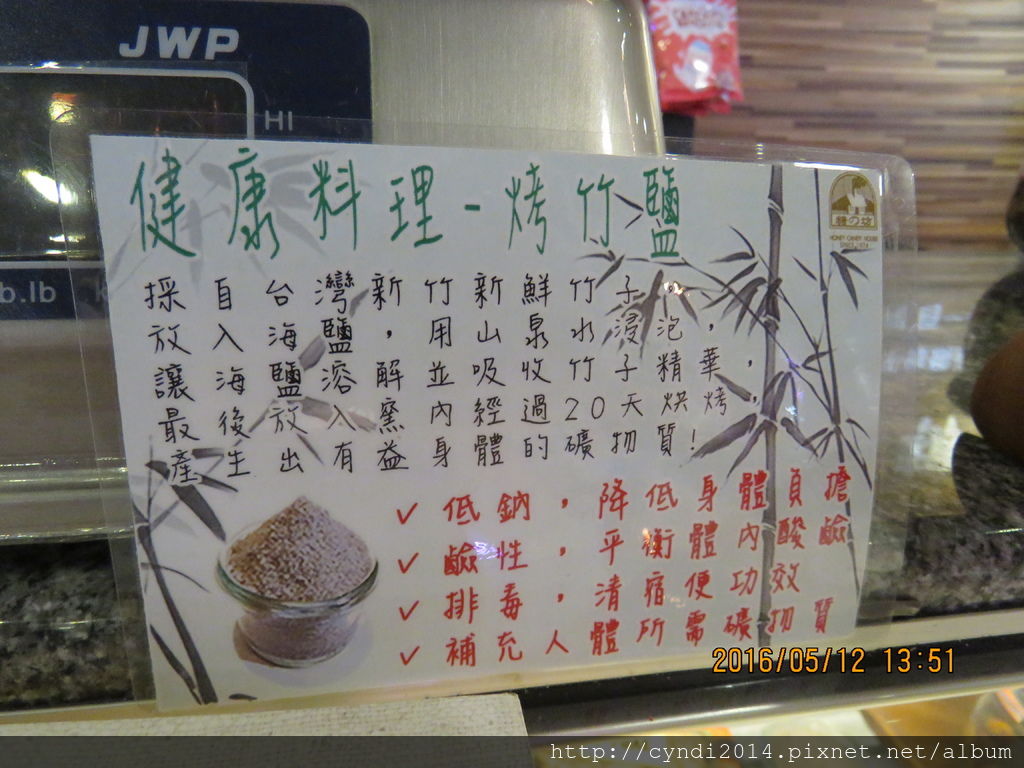 JWP
HI
b.lb
健康料理-烤竹鹽
HONEY CANDY HOUSE
採自台灣新竹新鮮竹子。
放入海鹽，用山泉水浸泡，
讓海鹽溶解並吸收竹子精華，
最後放入窯內經過20天烘烤，
產生出有益身體的礦物質!
✓低鈉，降低身體負擔
✓鹼性，平衡體內酸鹼
✓排毒，清宿便功效
✓補充人體所需礦物質
2016/05/12 13:51
http://cyndi2014.pixnet.net/album